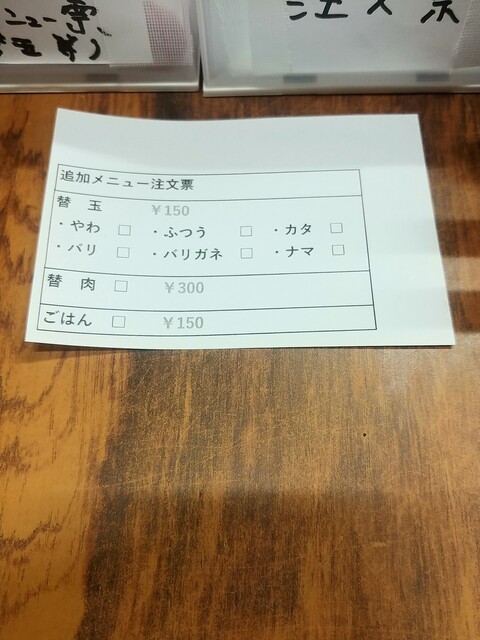 ニュー票
注文票
追加メニュー注文票
替 玉 ￥150
・やわ □ ・ふつう □ ・カタ □
・バリ □ ・バリガネ □ ・ナマ □
替 肉 □ ￥300
ごはん □ ￥150